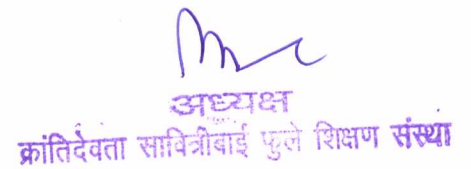 अध्यक्ष
क्रांतिदेवता सावित्रीबाई फुले शिक्षण संस्था